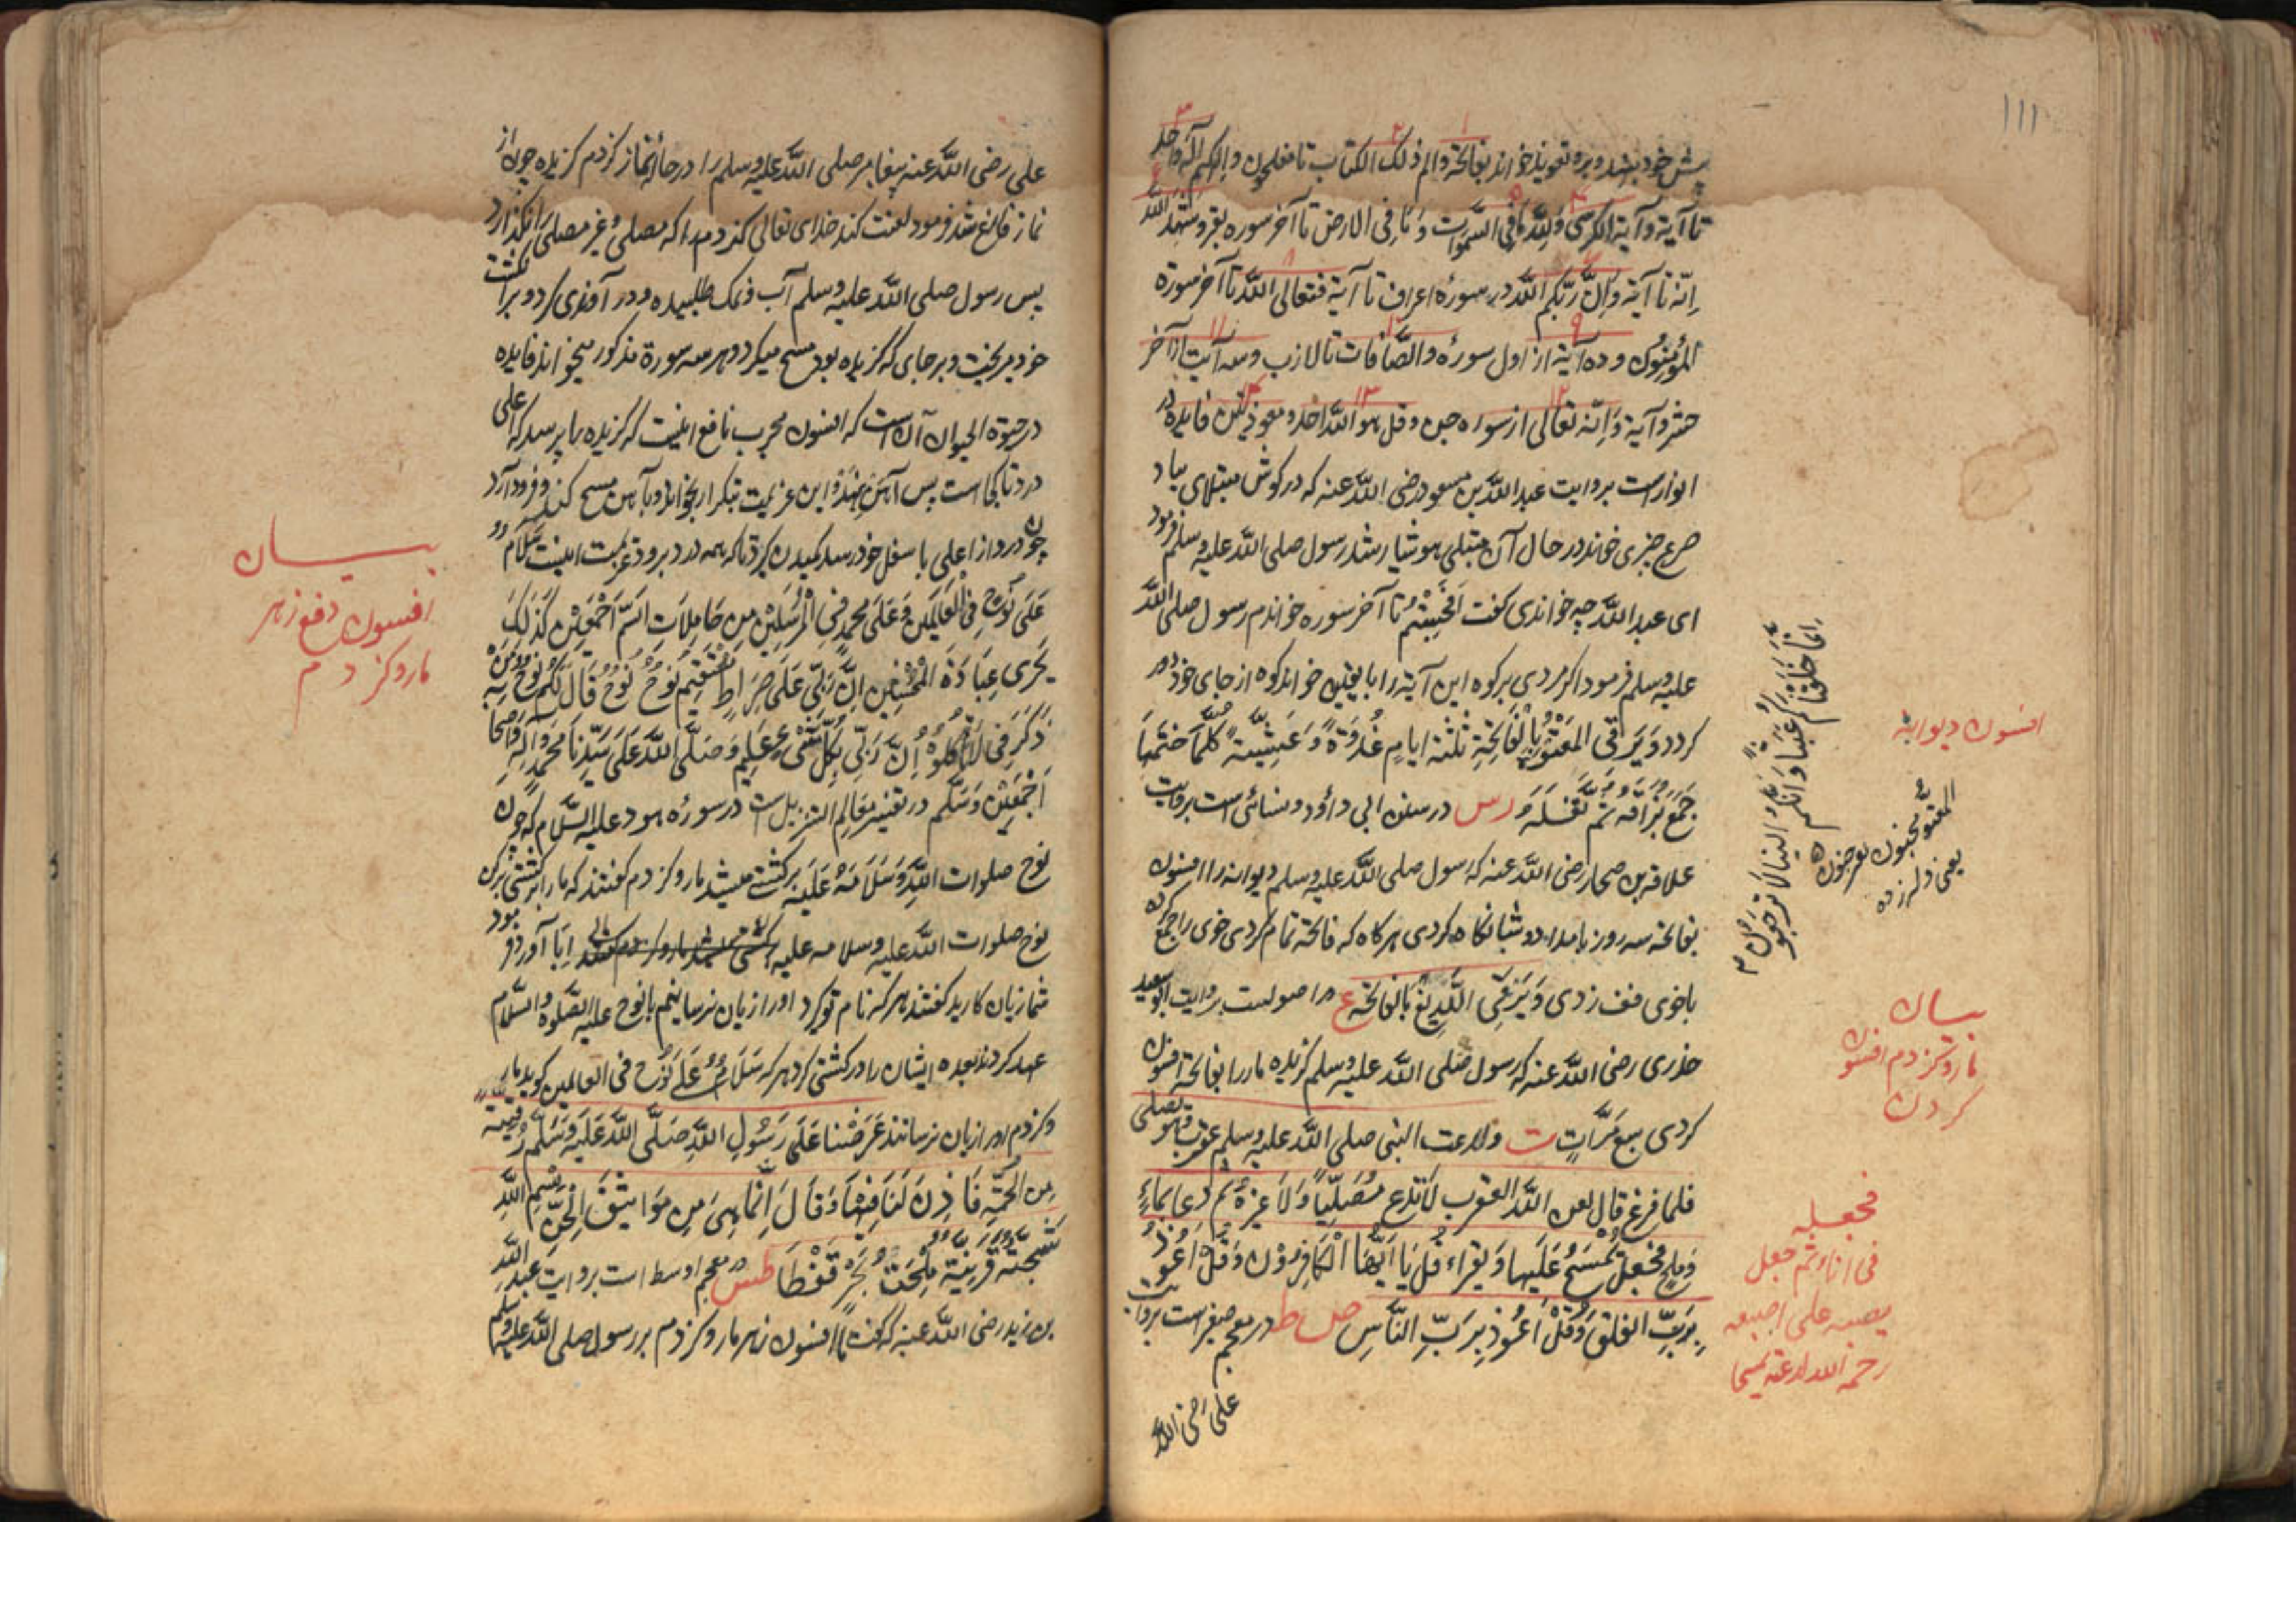 ١١١
پیش خود بنشاند و برو تعویذ خواند بفاتحة و الم ذلک الکتاب تا مفلحون و الهکم اله واحد
تا آیة و آیة الکرسی و لله ما فی السموات و ما فی الارض تا آخر سوره بقر و شهد الله
انه تا آیة و ان ربکم الله در سوره اعراف تا آیة فتعالی الله تا آخر سورة
المؤمنون و ده آیة از اول سوره و الصافات تا لازب و سه آیت از آخر
حشر و آیة و انه تعالی از سوره جن و قل هو الله احد و معوذتین فایده در
انوار است بروایت عبدالله بن مسعود رضی الله عنه که در گوش مبتلای بیاد
صرع چیزی خواند در حال آن مبتلی هوشیار شد رسول صلی الله علیه وسلم فرمود
ای عبدالله چه خواندی گفت اَفَحَسِبْتُمْ تا آخر سوره خواندم رسول صلی الله
علیه وسلم فرمود اگر مردی بر کوه این آیة را با یقین خواند کوه از جای خود دور
گردد وَیَرْقِی المَعْتُوْهَ بِالْفَاتِحَةِ ثَلٰثَةَ ایامٍ غُدْوَةً وَعَشِیَّةً کُلَّمَا خَتَمَهَا
جَمَعَ بُزَاقَهُ ثُمَّ تَفَلَهُ دس در سنن ابی داؤد و نسائی است بروایت
علاقه بن صحار رضی الله عنه که رسول صلی الله علیه وسلم دیوانه را افسون
بفاتحه سه روز بامداد و شبانگاه کردی هرگاه که فاتحة تمام کردی خوی را جمع کرده
باخوی تف زدی وَیَرْقِی اللَّدِیْغَ بالفاتحة ع در اصولست بروایت ابوسعید
خدری رضی الله عنه که رسول صلی الله علیه وسلم گزیده مار را بفاتحة افسون
کردی سبع مَرَّاتٍ ت و لدغت النبی صلی الله علیه وسلم عقرب وهو یصلی
فلما فرغ قال لعن الله العقرب لاتدع مُصَلِّیاً وَلَا غیرهُ ثم دعا بماءٍ
وَمِلحٍ فجعل یَمْسَحُ عَلَیها وَ یقراء قُلْ یَا اَیُّهَا الْکَافِرُوْنَ وَقُلْ اَعُوْذُ
بِرَبِّ الفلق وَقُلْ اَعُوْذُ بِرَبِّ النَّاسِ صط در معجم صغیر است بروایت
علی رضی الله
اَنَّمَا خَلَقْنَاکُمْ عَبَثاً وَاَنَّکُمْ اِلَیْنَا لَا تُرْجَعُوْنَ
افسون دیوانه
المعتوه مجنون
یعنی
بیان
مار و کژدم افسون
کردن
فجعله
فی اناء ثم جعل
یصبه علی اصبعه
علی رضی الله عنه پیغامبر صلی الله علیه وسلم را در حالة نماز کژدم گزیده چون از
نماز فارغ شد فرمود لعنت کند خدای تعالی کژدم را که مصلی و غیر مصلی را نگذارد
پس رسول صلی الله علیه وسلم آب و نمک طلبیده و در آوندی کرد و بر انگشت
خود میریخت و بر جای که گزیده بود مسح میکرد و هر سه سورة مذکور میخواند فایده
در حیوة الحیوان آن است که افسون مجرب نافع اینست که گزیده را پرسد که اعلی
درد تا کجا است پس آهن بنهد و این عزیمت بتکرار بخواند و بآهن مسح کند و فرود آرد
چون درد از اعلی با سفل خود رسد مکیدن گیرد تا که همه درد برود عزیمت اینست سَلَامٌ
عَلَی نُوْحٍ فِی الْعَالَمِیْنَ وَعَلَی مُحَمَّدٍ فِی الْمُرْسَلِیْنَ مِن حَامِلَاتِ السَّمِّ اَجْمَعِیْنَ کَذَلِکَ
یَجْزِی عِبَادَهُ الْمُحْسِنِیْنَ اِنَّ رَبِّیْ عَلَی صِرَاطٍ مُسْتَقِیْمٍ نُوْحٌ نُوْحٌ قَالَ لَکُمْ نُوْحٌ مَنْ
ذَکَرَنِی لَا تَأکُلُوْهُ اِنَّ رَبِّی بِکُلِّ شَیْءٍ عَلِیْمٌ وَصَلَّی اللهُ عَلَی سَیِّدِنَا مُحَمَّدٍ وَاٰلِهِ وَاَصْحَابِهِ
اَجْمَعِیْنَ وَسَلَّمَ در تفسیر معالم التنزیل است در سورهٔ هود علیه السلام که چون
نوح صلوات الله وسلامه علیه بر کشتی میشد مار و کژدم گفتند که ما را بر کشتی بر کن
نوح صلوات الله علیه وسلامه علیه اِبا آورد فرمود
شما زیان کارید گفتند هر که نام تو گیرد او را زیان نرسانیم با نوح علیه الصلوة والسلام
عهد کردند بعده ایشان را در کشتی کرد هر که سَلَامٌ عَلَی نُوْحٍ فی العالمین گوید مار
و کژدم او را زیان نرسانند عَرَضْنَا عَلَی رَسُوْلِ اللهِ صَلَّی اللهُ عَلَیْهِ وَسَلَّمَ رُقْیَةً
مِنَ الْحُمَةِ فَاَذِنَ لَنَا فِیْهَا وَقَالَ اِنَّمَا هِیَ مِنْ مَوَاثِیْقِ الْجِنِّ بِسْمِ اللهِ
شَجَّةٌ قَرْنِیَّةٌ مِلْحَةُ بَحْرٍ قَفْطَا طس در معجم اوسط است بروایت عبدالله
بن زید رضی الله عنه که گفت ما افسون زهر مار و کژدم بر رسول صلی الله علیه وسلم
بیان
افسون دفع زهر
مار و کژدم